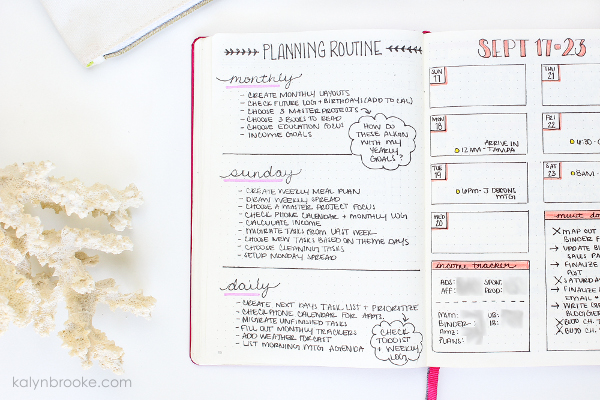 PLANNING ROUTINE
monthly
- CREATE MONTHLY LAYOUTS
- CHECK FUTURE LOG + BIRTHDAYS (ADD TO CAL)
- CHOOSE 3 MASTER PROJECTS
- CHOOSE 3 BOOKS TO READ
- CHOOSE EDUCATION FOCUS
- INCOME GOALS
HOW DO
THESE ALIGN
WITH MY
YEARLY
GOALS?
sunday
- CREATE WEEKLY MEAL PLAN
- DRAW WEEKLY SPREAD
- CHOOSE A MASTER PROJECT FOCUS
- CHECK PHONE CALENDAR + MONTHLY LOG
- CALCULATE INCOME
- MIGRATE TASKS FROM LAST WEEK
- CHOOSE NEW TASKS BASED ON THEME DAYS
- CHOOSE CLEANING TASKS
- SETUP MONDAY SPREAD
daily
- CREATE NEXT DAYS TASK LIST + PRIORITIZE
- CHECK PHONE CALENDAR FOR APPTS.
- MIGRATE UNFINISHED TASKS
- FILL OUT MONTHLY TRACKERS
- ADD WEATHER FORCAST
- LIST MORNING MTG AGENDA
CHECK
TODOIST
+ WEEKLY
LOG
SEPT 17-23
SUN
17
MON
18
ARRIVE IN
12AM - TAMPA
TUE
19
6PM - J DEACONS
MTG
WED
20
THU
21
FRI
22
SAT
23
8AM -
income tracker
ADS:
AFF:
SPON:
MISC:
BINDER:
AMZ:
PLANS:
must do
MAP OUT
BINDER
UPDATE
SALES PA
FINALIZE
POST
SATURDA
FINALIZE
EMAIL
WRITE
BUJO CH.
BUJO CH.
kalynbrooke.com